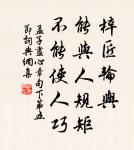 梓匠輪輿
能與人規矩
不能使人巧
孟子盡心章句下第五
節詞典網集